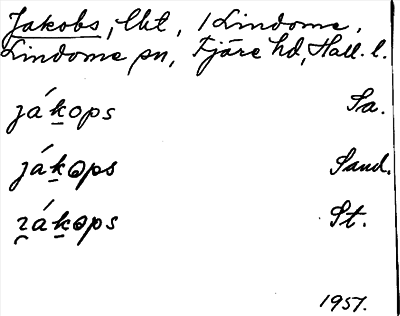 Jakobs, lkt, i Lindome,
Lindome sn, Fjäre hd, Hall. l.
jákops Sa.
jákɷps Sand.
ɿákɷps St.
1957.